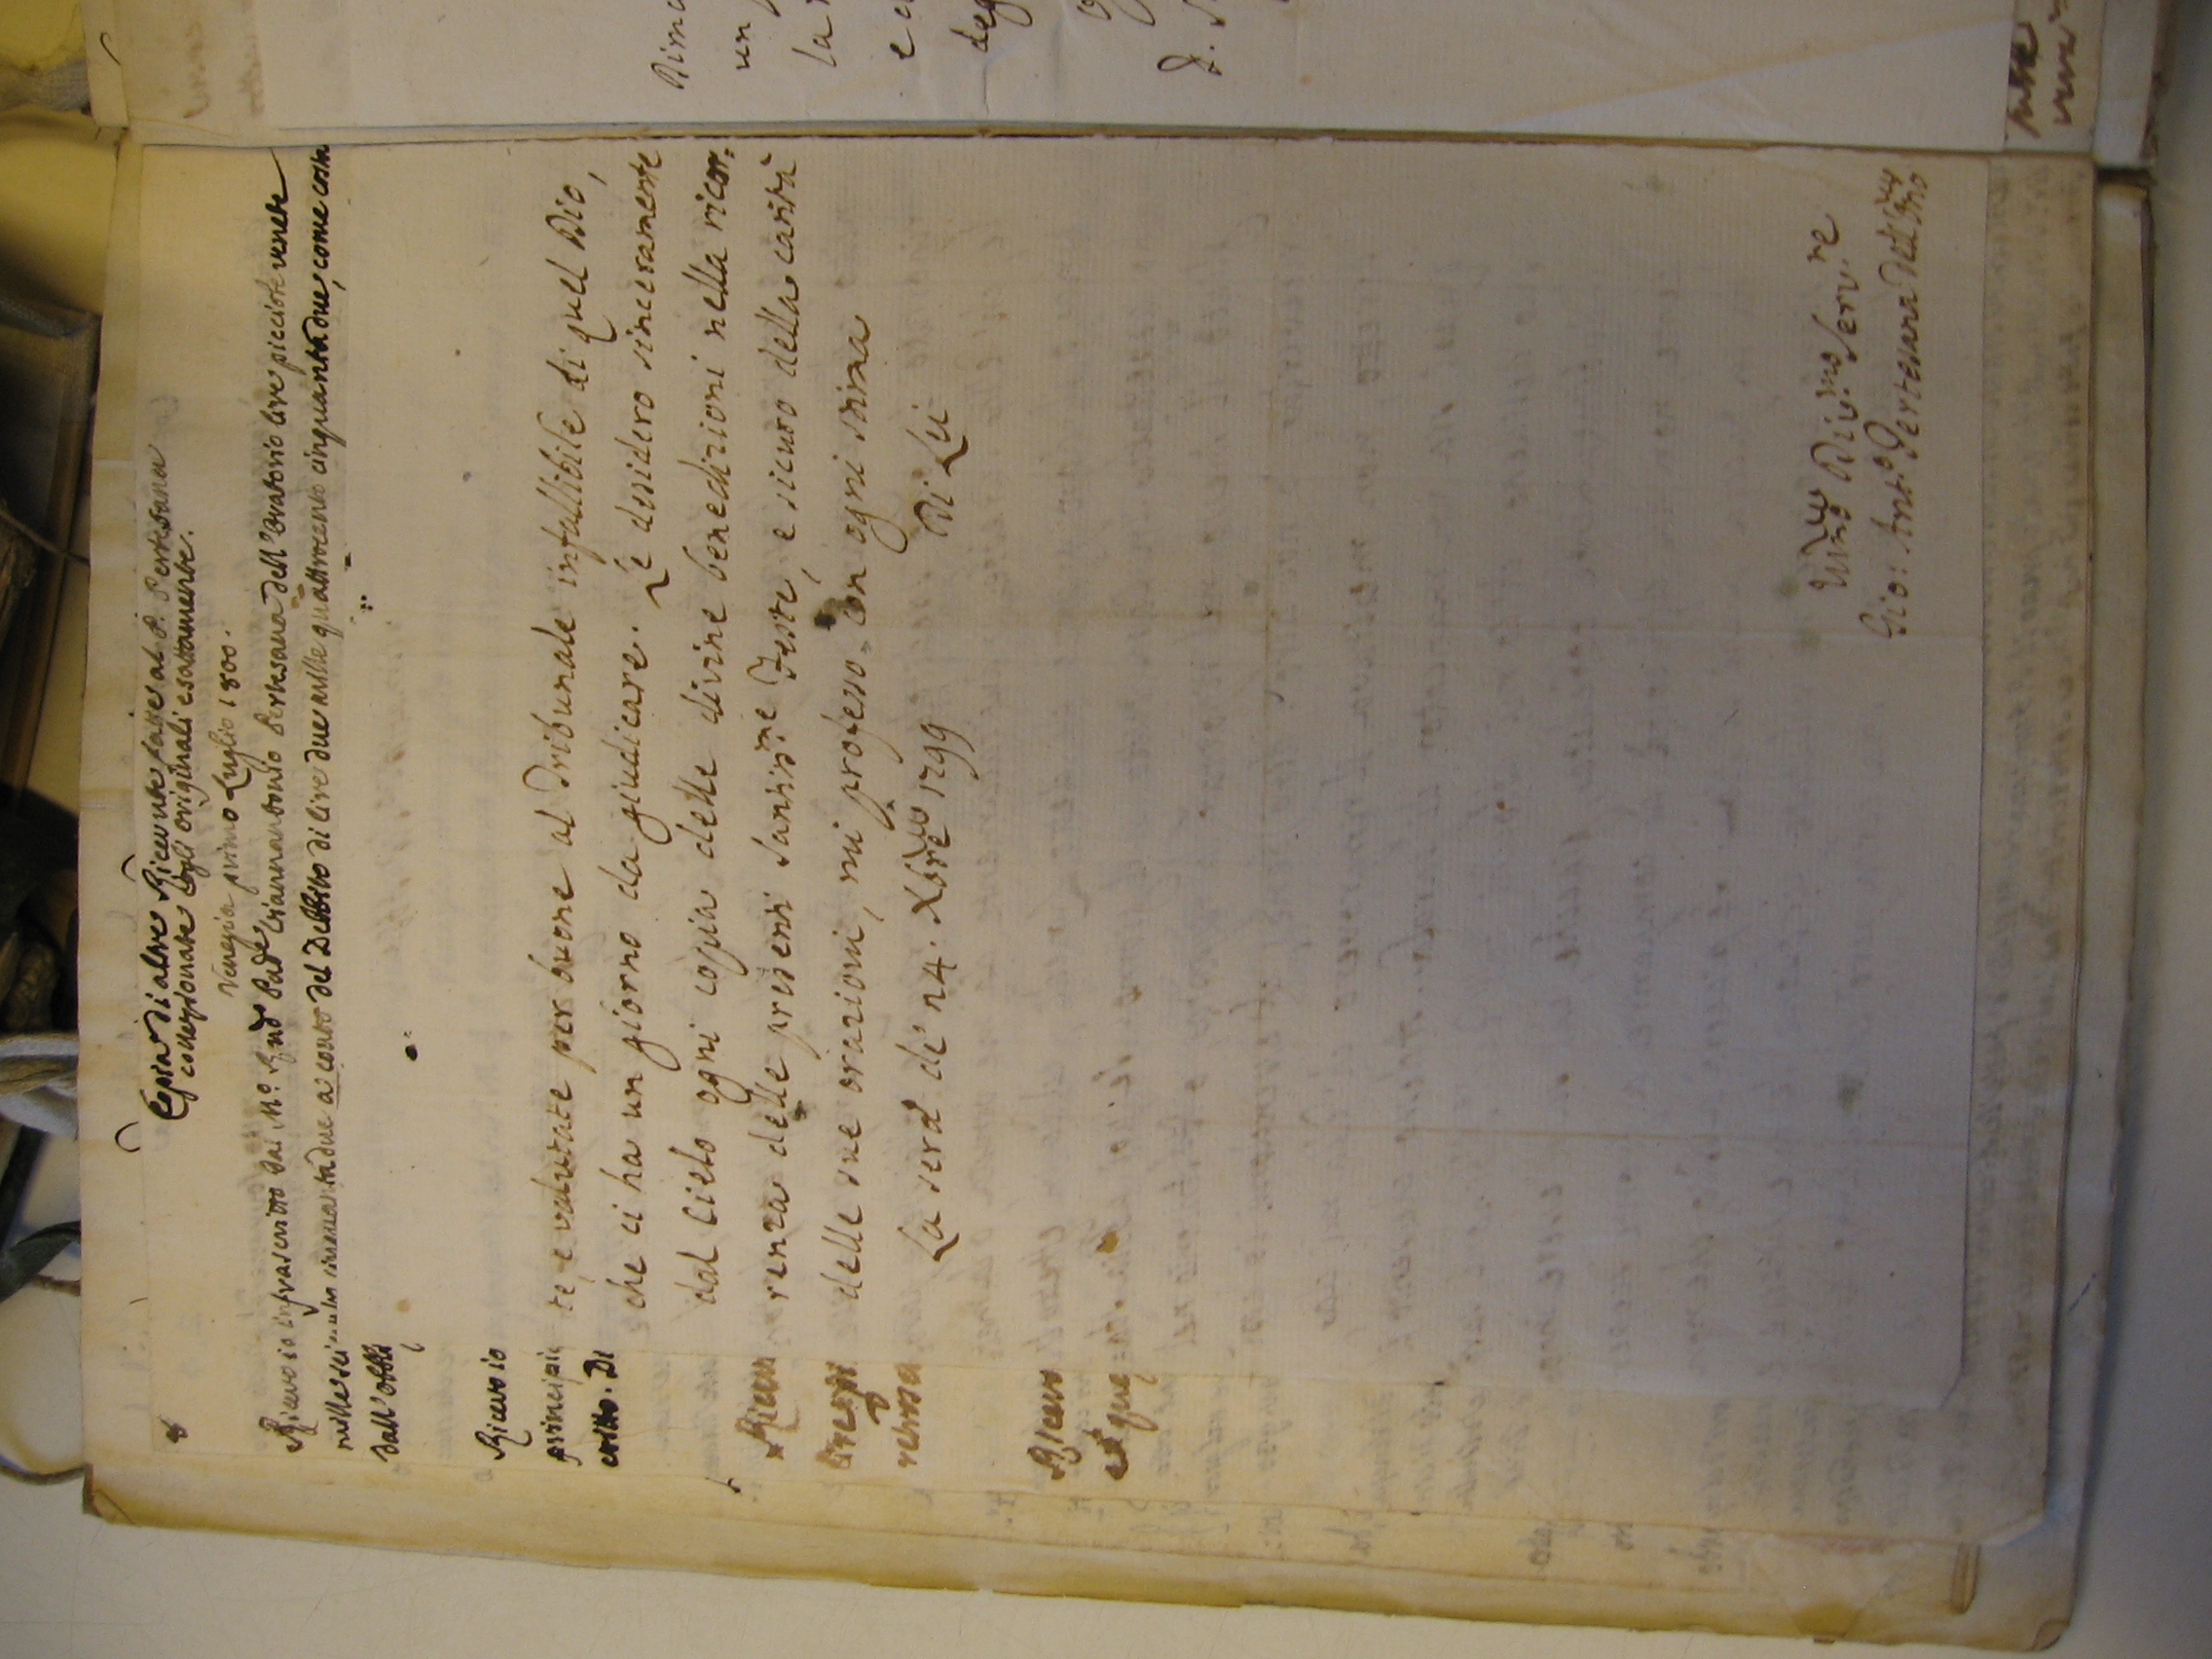 8
Copia di altre Ricevute fatte al P. Pertesana
collezionate cogli originali esattamente.
Venezia primo Luglio 1800.
Ricevo io infrascritto dal M.º Rndo Pad.e Giannantonio Pertesana dell'Oratorio lire picciole venete
mille sei cinquantadue a conto del Debito di lire due mille quattrocento cinquantadue, come consta
dall'obbli
Ricevo io
principi
critto. Di
Ricev
rebora
Ricevo
te, e valutate per buone al Tribunale infallibile di quel Dio,
che ci ha un giorno da giudicare. Le desidero sinceramente
dal Cielo ogni copia delle divine benedizioni nella ricor:
renza delle presenti Santiss.me Feste, e sicuro della carità
delle sue orazioni, mi professo con ogni stima
Di Lei
La sera de' 24. Xbre 1799
Umo Divmo Serv.re
Gio: Anto Pertesana dell'Orio
Dima
un
la
e
deg
D.